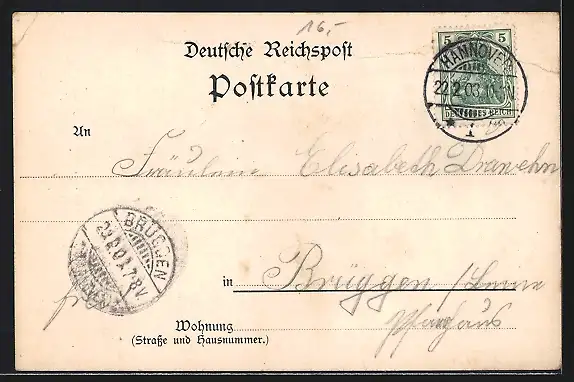 16,-
Deutsche Reichspost
Postkarte
5 5
HANNOVER
22.2.03.
1
DEUTSCHES REICH
An
Fräulein Elisabeth Drawehn
BRÜGGEN
7-8V
in Brüggen / Leine
Pfarrhaus
Wohnung
(Straße und Hausnummer.)